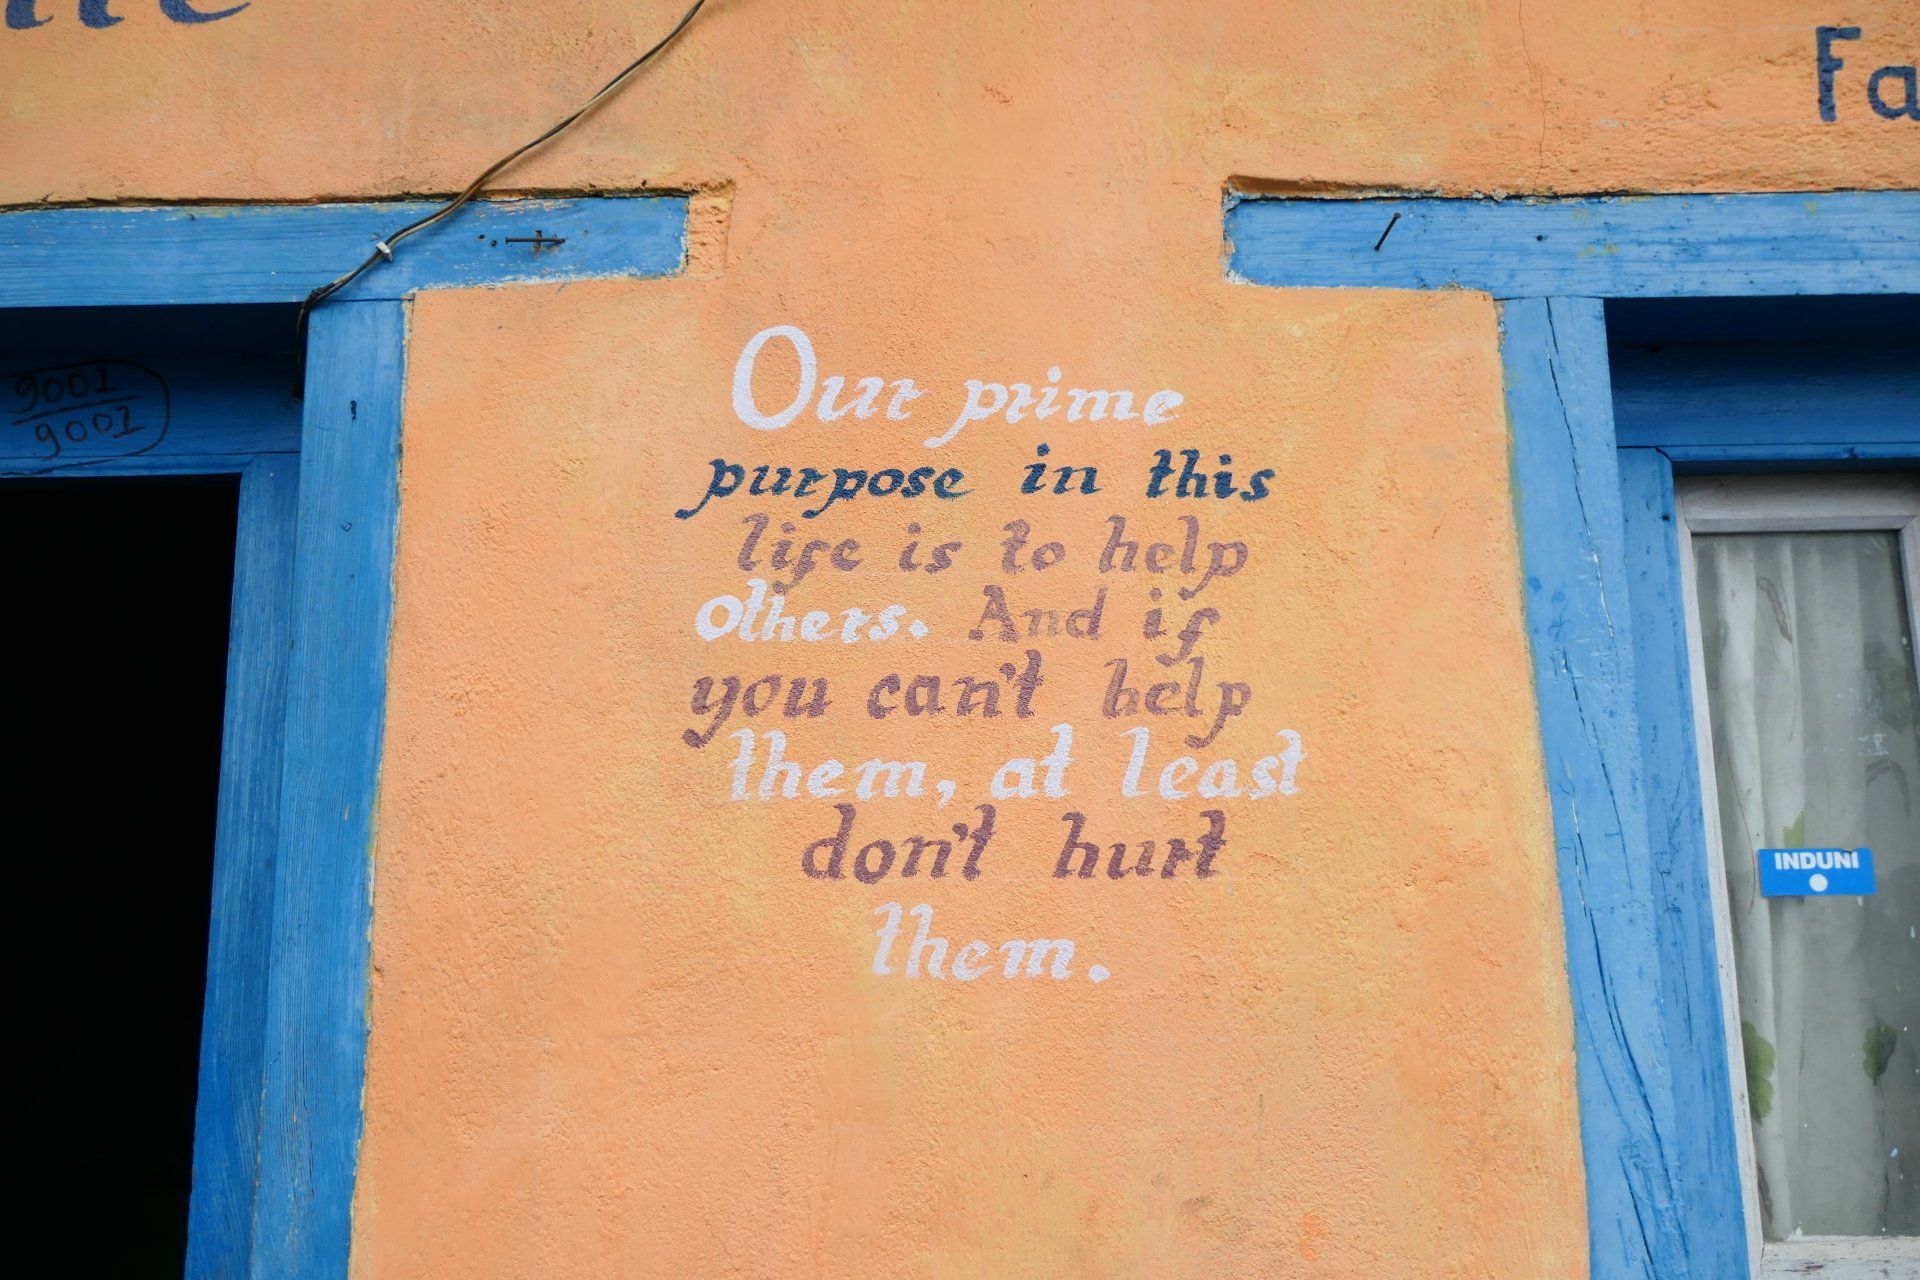 Fa
9001
9001
Our prime
purpose in this
life is to help
others. And if
you can't help
them, at least
don't hurt
them.
INDUNI